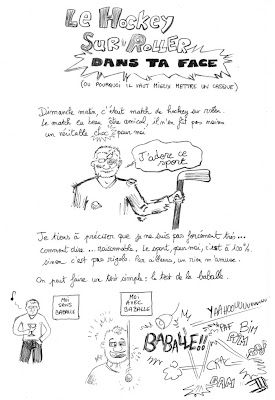 LE HOCKEY
SUR ROLLER
DANS TA FACE
(OU POURQUOI IL VAUT MIEUX METTRE UN CASQUE)
Dimanche matin, c'était match de hockey sur roller.
Le match eu beau être amical, il n'en fut pas moins
un véritable choc pour moi
J'adore ce
sport
Je tiens à préciser que je ne suis pas forcément très...
comment dire... raisonnable. Le sport, pour moi, c'est à 100%,
sinon c'est pas rigolo. Par ailleurs, un rien m'amuse.
On peut faire un test simple : le test de la baballe.
MOI
SANS
BABALLE
MOI
AVEC
BABALLE
BABALLE!!
YAAHOOUUUUUUU
PAF
BIM
BAM
CRAC
BAM